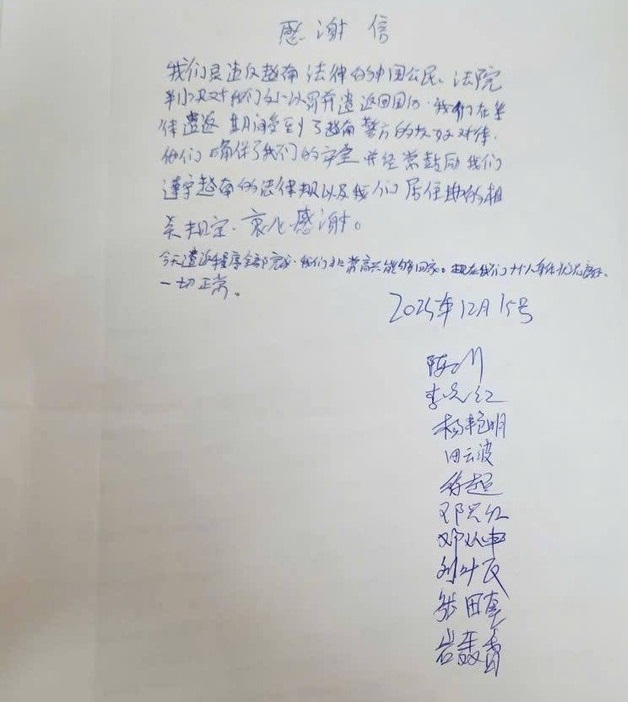 感谢信
我们是违反越南法律的中国公民、法院
判决对我们处以罚款遣返回国。我们在等
待遣返期间受到了越南警方的友好对待.
他们确保了我们的安全并经常鼓励我们
遵守越南的法律规以及我们居住地的相
关规定.衷心感谢。
今天遣返程序全部完成.我们非常高兴能够回家。现在我们十人身体状况良好.
一切正常。
2025年12月15号
陈川
李兴红
杨艳明
田云波
超
邓兴红
邓从申
刘叶
张田
岩轰